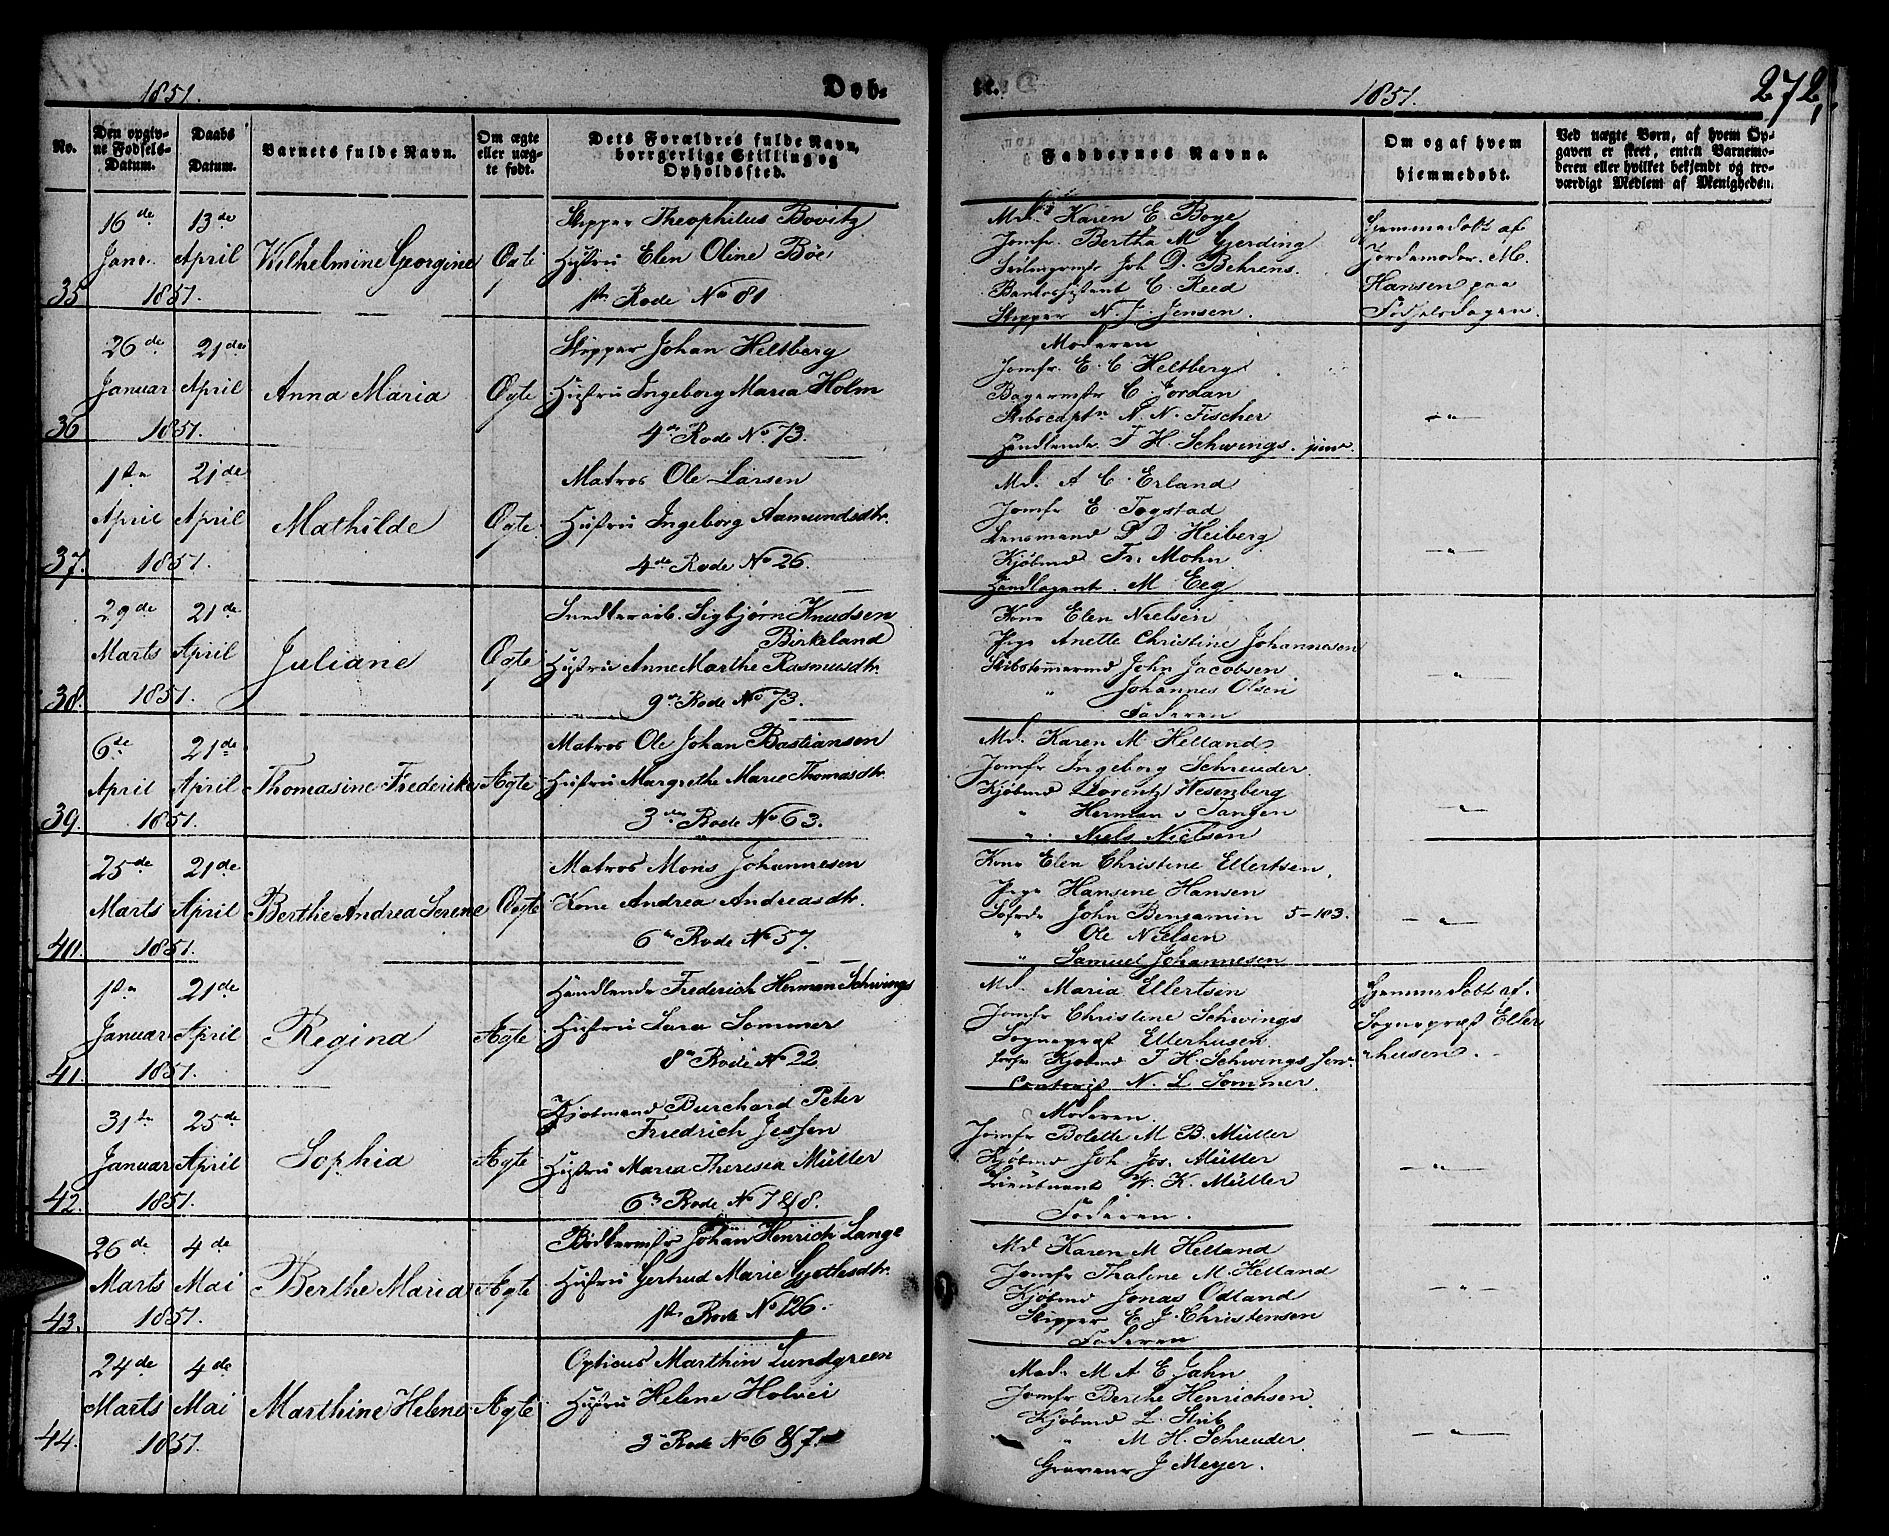 1851.
Døb-
No.
Den opgiv-
ne Fødsels-
Datum.
Daabs
Datum.
Barnets fulde Navn.
Om ægte
eller uæg-
te født.
Dets Forældres fulde Navn,
borgerlige Stilling og
Opholdssted.
35
16de Janr.
13de April
1851.
Wilhelmine Georgine
Ægte
Skipper Theophilus Bovitz
Hustru Elen Oline Böe
1ste Rode No 81
36
26de Januar
21de April
1851.
Anna Maria
Ægte
Skipper Johan Heltberg
Hustru Ingeborg Maria Holm
4de Rode No 73.
37.
1ste April
21de April
1851.
Mathilde
Ægte
Matros Ole Larsen
Hustru Ingeborg Aamundsdtr.
4de Rode No 26.
38.
29de Marts
21de April
1851.
Juliane
Ægte
Sigbjørn Knudsen
Birkeland
Hustru Anne Marthe Rasmusdtr.
9de Rode No 73.
39.
6de April
21de April
1851.
Thomasine Frederikke
Ægte
Matros Ole Johan Bastiansen
Hustru Margrethe Marie Thomasdtr.
3die Rode No 63.
40.
25de Marts
21de April
1851.
Berthe Andrea Serene
Ægte
Matros Mons Johannesen
Kone Andrea Andreasdtr.
6te Rode No 57.
41.
1ste Januar
21de April
1851.
Regina
Ægte
Handlende Frederich Herman Schwings
Hustru Sara Sommer
8de Rode No 22
42.
31te Januar
25de April
1851.
Sophia
Ægte
Kjøbmand Burchard Peter
Friedrich Jessen
Hustru Maria Theresia Müller
6te Rode No 7 & 8.
43.
26de Marts
4de Mai
1851.
Berthe Maria
Ægte
Bødkermstr Johan Henrich Lange
Hustru Gertrud Marie Gjethesdtr.
1ste Rode No 126.
44.
24de Marts
4de Mai
1851.
Marthine Helene
Ægte
Opticus Marthin Lundgreen
Hustru Helene Holvei
3die Rode No 6 & 7.
te.
1851.
272,
Faddernes Navne.
Om og af hvem
hjemmedøbt.
Ved uægte Børn, af hvem Op-
gaven er skeet, enten Barnemo-
deren eller hvilket bekjendt og tro-
værdigt Medlem af Menigheden.
Md. Karen E. Boye
Jomfr. Bertha M Gjerding
Joh D. Behrens.
C. Reed
Skipper N. J. Jensen.
Hjemmedøbt af
Jordemoder M.
Hansen paa
Fødselsdagen.
Moderen
Jomfr. E. C Heltberg
Bagermstr C. Jordan
Skibscaptn N. N. Fischer
Handlende T H. Schwings. junr.
- " -
Md. A C. Erland
Jomfr E. Togstad
Lensmand D D Heiberg
Kjøbmd Fr. Mohn
Handlagent. M Eeg
- " -
Kone Elen Nielsen
Pige Anette Christine Johannesen
Skibstømmermd John Jacobsen
" Johannes Olsen
Faderen
"
Md. Karen M. Helland
Jomfr Ingeborg Schreuder
Kjøbmd Lorentz Wesenberg
" Herman v Tangen
" Niels Nielsen
- " -
Kone Elen Christine Ellertsen.
Pige Hansine Hansen
Søfrde John Benjamin 5-103.
" Ole Nielsen
" Samuel Johannesen
- " -
Md. Maria Ellertsen
Jomfr Christine Schwings
Sognepræst Ellerhusen
Kjøbmd T. H. Schwings Senr.
N. L Sommer.
Hjemmedøbt af
Sognepræst Eller
husen.
Moderen.
Jomfr Bolette M. B. Müller
Kjøbmd Joh Jos. Müller
Lieutnant W. K. Müller
Faderen.
- " -
Md. Karen M Helland
Jomfr Thaline M. Helland
Kjøbmd Jonas Odland
Skipper E J. Christensen
Faderen
- " -
Mad. M A E Jahn
Jomfr Berthe Henrichsen.
Kjøbmd L. Stub
" M H. Schreuder.
Graveur J Meyer.
- " -